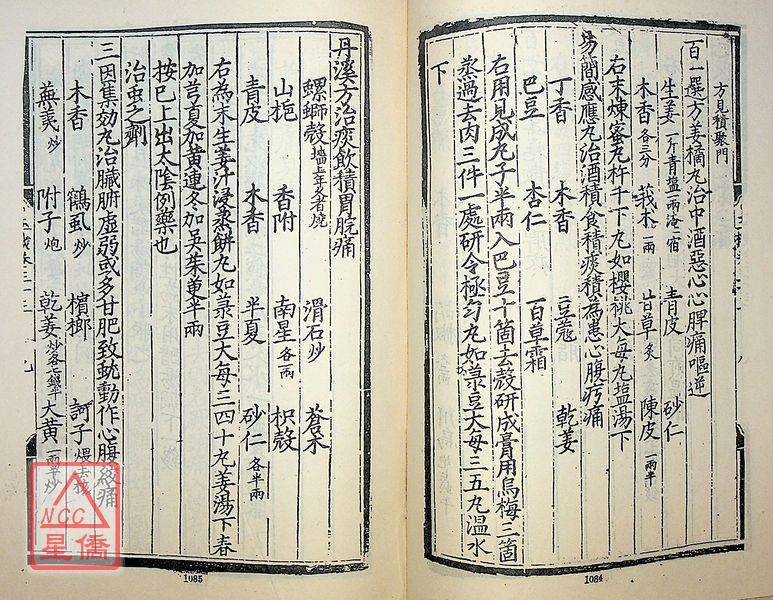 方見積聚門
百一選方姜橘丸治中酒惡心心脾痛嘔逆
生姜一斤青鹽一兩淹一宿　青皮　砂仁
木香各三分　莪朮一兩　甘草炙　陳皮一兩半
右末煉蜜丸杵千下丸如櫻桃大每丸塩湯下
易簡感應丸治酒積食積痰積為患心腹疞痛
丁香　木香　豆蔻　乾姜
巴豆　杏仁　百草霜
右用見成丸子半兩入巴豆十箇去殻研成膏用烏梅三箇
蒸過去肉三件一處研令極勻丸如菉豆大每三五丸温水
下
1084
丹溪方治痰飲積胃脘痛
螺螄殻墻上年久者燒　滑石炒　蒼朮
山梔　香附　南星各一兩　枳殻
青皮　木香　半夏　砂仁各半兩
右為末生姜汁浸蒸餅丸如菉豆大每三四十丸姜湯下春
加芎夏加黄連冬加吳茱萸半兩
按已上出太陰例藥也
治虫之劑
三因集効丸治臟腑虛弱或多甘肥致蚘動作心腹絞痛
木香　鶴虱炒　檳榔　訶子煨去核
蕪荑炒　附子炮　乾姜炒各七錢半　大黄一兩半炒
1085
NCC
星僑